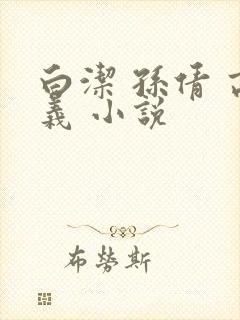 白潔 孫倩 高
義 小說
布勞斯